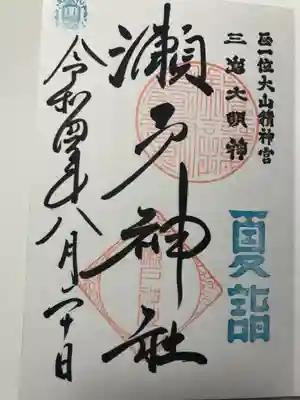 正一位大山積神宮
三島大明神
夏詣
瀬戸神社
令和四年八月二十日